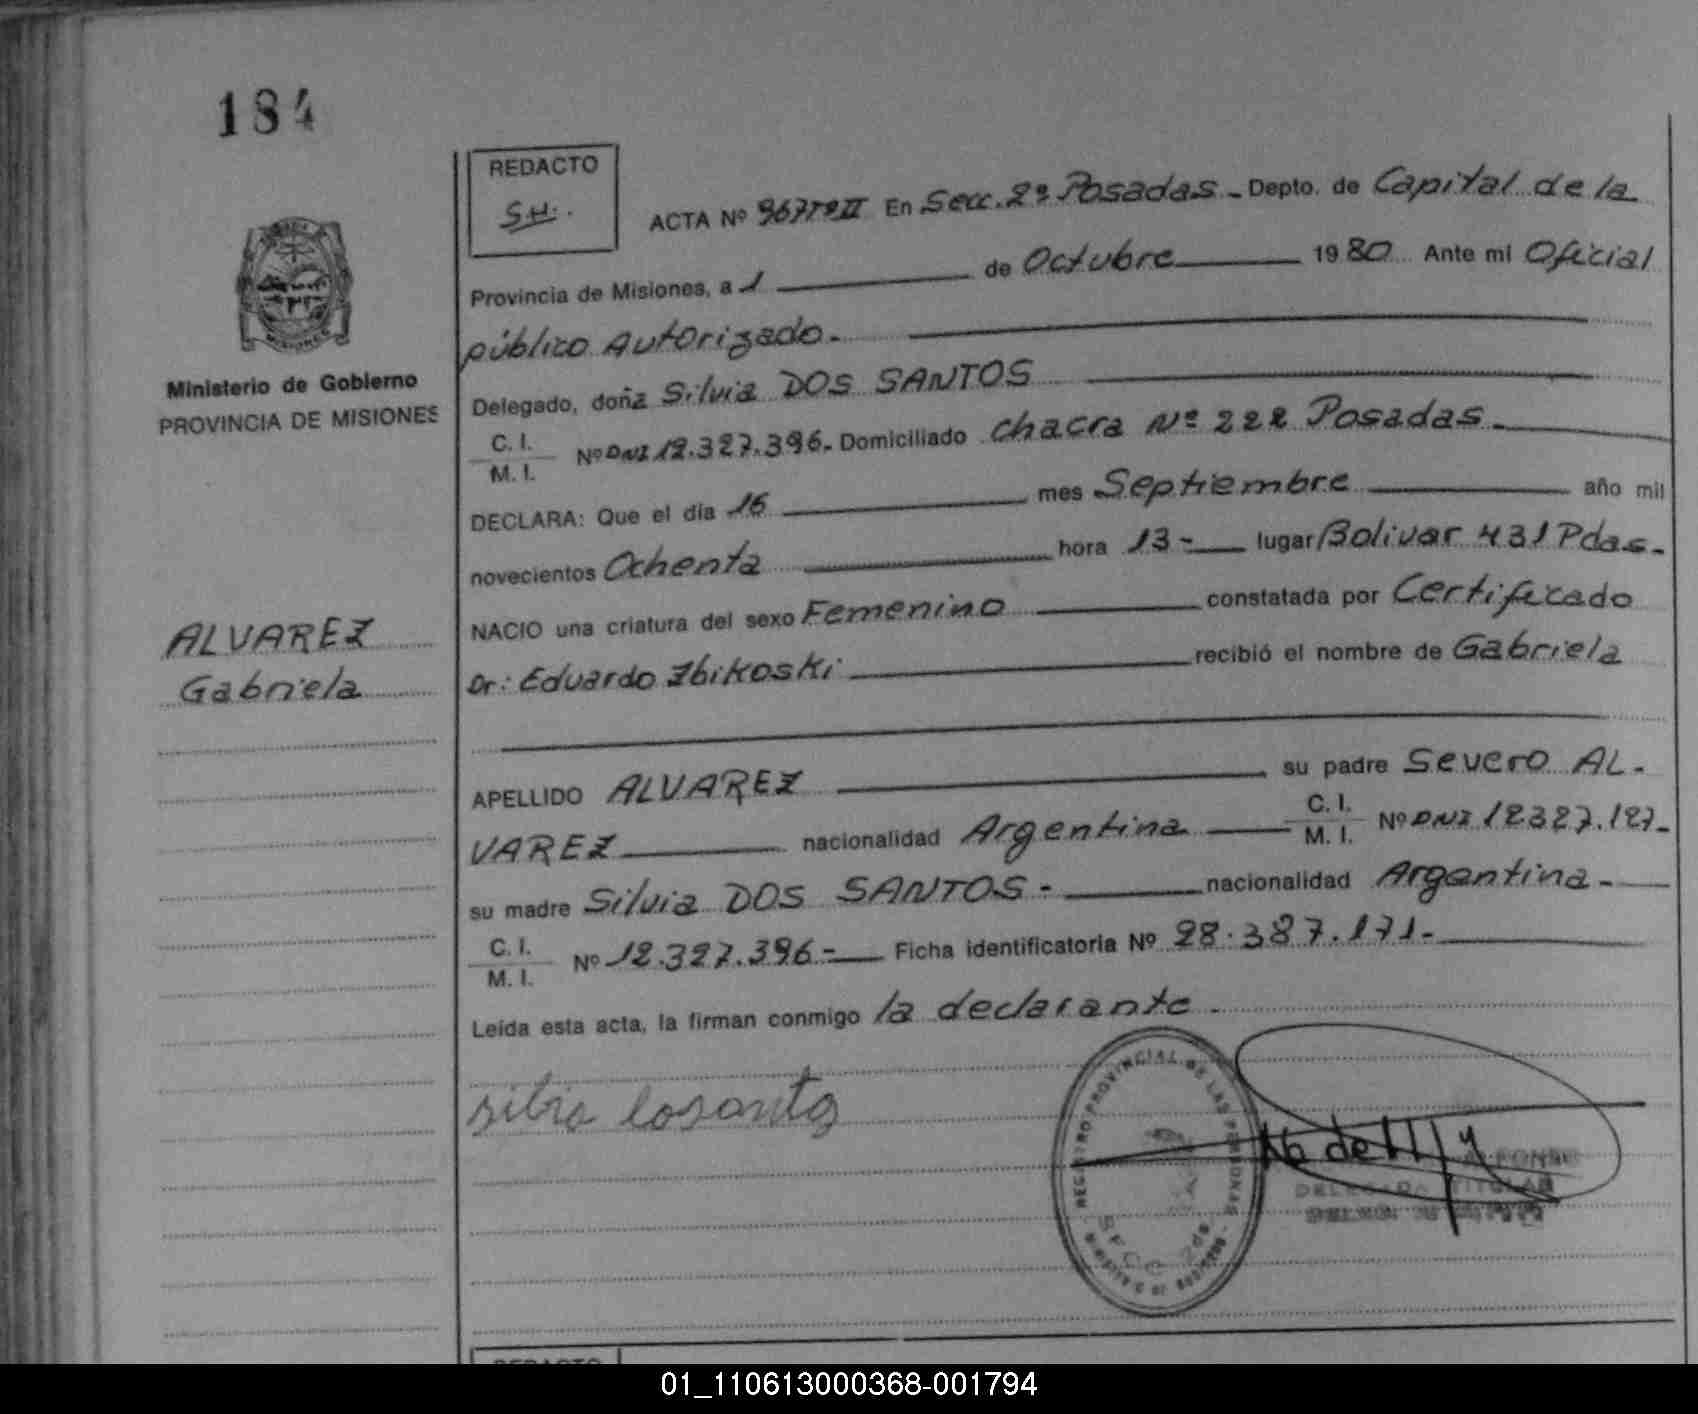 184
REDACTO
S.H.
ACTA Nº 967 Tº II En Secc. 2º Posadas - Depto. de Capital de la
Provincia de Misiones, a 1 de Octubre 19 80 Ante mi Oficial
público Autorizado.-
Ministerio de Gobierno
PROVINCIA DE MISIONES
Delegado, doña Silvia DOS SANTOS
C. I.
M. I. Nº DNI 12.327.396.- Domiciliado chacra Nº 222 Posadas.-
DECLARA: Que el día 16 mes Septiembre año mil
novecientos Ochenta hora 13- lugar Bolivar 431 Pdas.-
NACIO una criatura del sexo Femenino constatada por Certificado
Dr: Eduardo Zbikoski recibió el nombre de Gabriela
ALVAREZ
Gabriela
APELLIDO ALVAREZ su padre Severo AL-
VAREZ nacionalidad Argentina C. I.
M. I. Nº DNI 12327.127-
su madre Silvia DOS SANTOS - nacionalidad Argentina -
C. I.
M. I. Nº 12.327.396- Ficha identificatoria Nº 28.387.171.-
Leída esta acta, la firman conmigo la declarante -
REGISTRO PROVINCIAL DE LAS PERSONAS
DELEGADA TITULAR
REDACTO
01_110613000368-001794